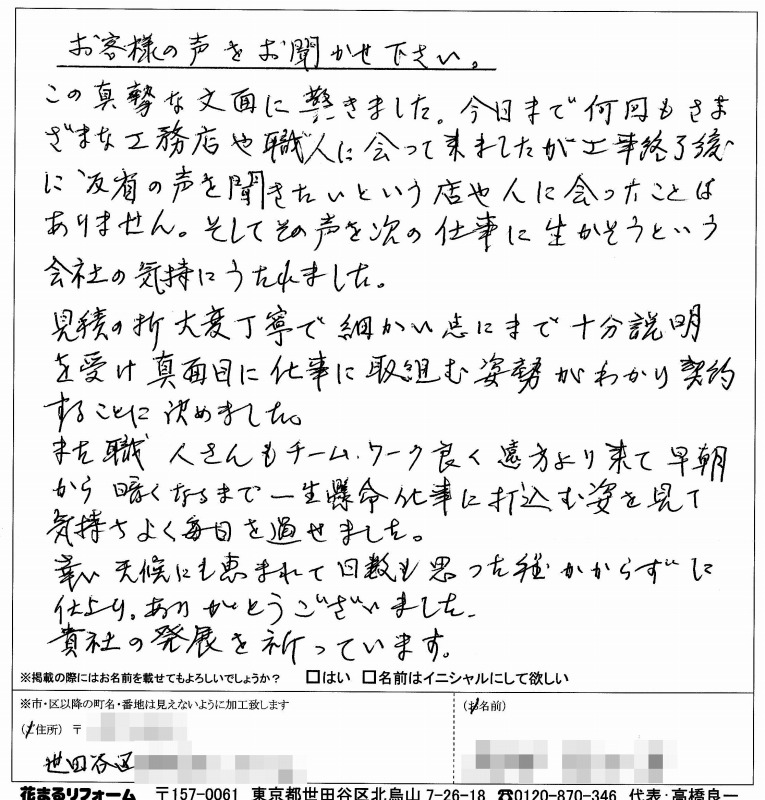 お客様の声をお聞かせ下さい。
この真勢な文面に驚きました。今日まで何回もさま
ざまな工務店や職人に会って来ましたが工事終了後
に反省の声を聞きたいという店や人に会ったことは
ありません。そしてその声を次の仕事に生かそうという
会社の気持にうたれました。
見積の折大変丁寧で細かい点にまで十分説明
を受け真面目に仕事に取組む姿勢がわかり契約
することに決めました。
また職人さんもチーム・ワーク良く遠方より来て早朝
から暗くなるまで一生懸命仕事に打込む姿を見て
気持ちよく毎日を過せました。
幸い天候にも恵まれて日数も思った程かからずに
仕上り。ありがとうございました。
貴社の発展を祈っています。
※掲載の際にはお名前を載せてもよろしいでしょうか? □はい □名前はイニシャルにして欲しい
※市・区以降の町名・番地は見えないように加工致します
(ご住所) 〒
世田谷区
(お名前)
花まるリフォーム 〒157-0061 東京都世田谷区北烏山7-26-18 ☎0120-870-346 代表・高橋良一